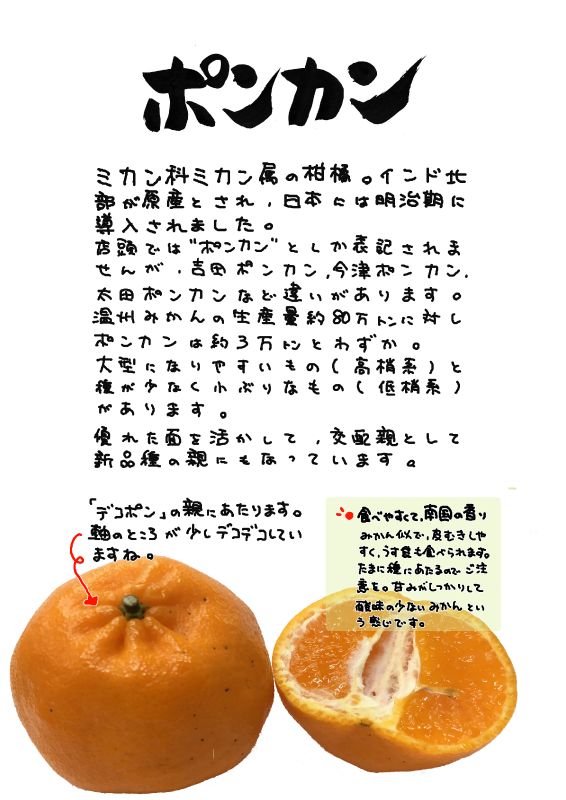 ポンカン
ミカン科ミカン属の柑橘。インド北
部が原産とされ、日本には明治期に
導入されました。
店頭では"ポンカン"としか表記されま
せんが、吉田ポンカン、今津ポンカン、
太田ポンカンなど違いがあります。
温州みかんの生産量約80万トンに対し
ポンカンは約3万トンとわずか。
大型になりやすいもの(高梢系)と
種が少なく小ぶりなもの(低梢系)
があります。
優れた面を活かして、交配親として
新品種の親にもなっています。
「デコポン」の親にあたります。
軸のところが少しデコデコしてい
ますね。
食べやすくて、南国の香り
みかん似で、皮むきしや
すく、うす皮も食べられます。
たまに種にあたるのでご注
意を。甘みがしっかりして
酸味の少ないみかんとい
う感じです。